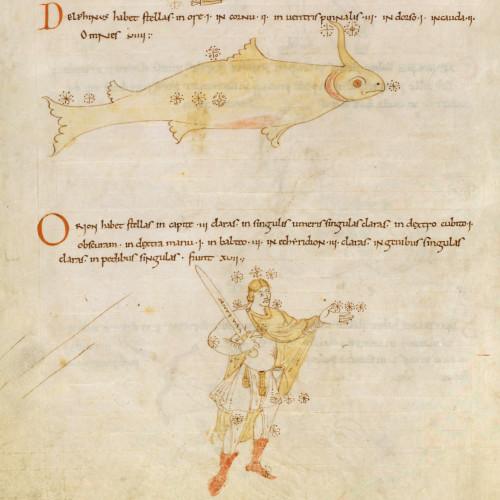 DELPHINUS habet stellas in ore·i· in cornu·ii· in ventris pinnalis·iii· in dorso·i· in cauda·ii·
Omnes viiii:
ORION habet stellas in capite·iii claras in singulis umeris singulas claras in dextro cubito·i·
obscuram· in dextra manu·i· in balteo·iii· in encheridion·iii· claras in genibus singulas
claras in pedibus singulas· fiunt xvii:,